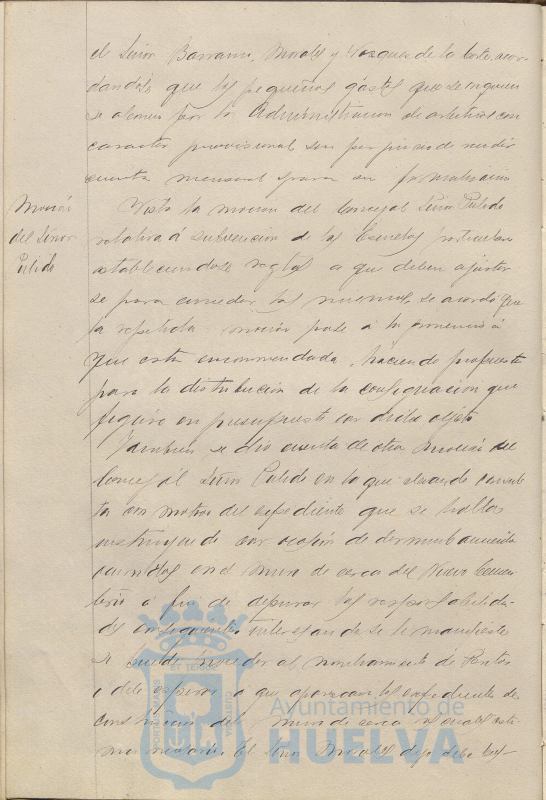 el Señor Barrann, Morales y Vazquez de la Corte, acor-
dandose que los pequeños gastos que se
se abonen por la Administracion de arbitrios con
caracter provisional sin perjuicio de rendir
cuenta mensual para su formalizacion
Moción
del Señor
Pulido
Vista la mocion del Concejal Señor Pulido
relativa á subvencion de las Escuelas particulares
estableciendose reglas a que deben ajustar-
se para conceder las mismas, se acordó que
la repetida mocion pase á la Comision á
que esta encomendada, haciendo propuesta
para la distribucion de la consignacion que
figura en presupuesto con dicho objeto
Tambien se dio cuenta de otra mocion del
Concejál Señor Pulido en la que elevando consul-
ta con motivo del expediente que se halla
instruyendo con ocasión de derrumbamiento
en el muro de cerca del Nuevo Cemen-
terio á fin de depurar las responsabilida-
des consiguientes interesando se le manifieste
si puede proceder al nombramiento de Peritos
ó debe esperar a que aparezcan los expedientes de
construccion del muro de cerca
El Señor Morales dijo debe
PORTUS MARIS
ET TERRAE
CUSTODIA
Ayuntamiento de
HUELVA